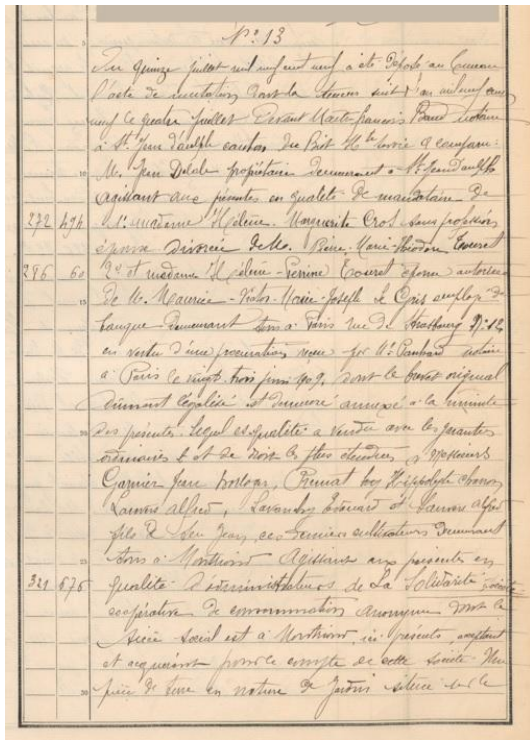 No. 13
5
Du quinze juillet mil neuf cent neuf a été déposé au bureau
l'acte de mutation dont la teneur suit: L'an mil neuf cent
neuf le quatre juillet Devant Maitre François Baud notaire
à St Jean d'aulph canton du Biot Hte Savoie a comparu:
10
M. Jean Délale propriétaire Demeurant à St Jean d'aulph
Agissant aux présentes en qualité de mandataire de
272 494 1o Madame Hélène-Marguerite Cros sans profession
épouse Divorcée de M. Pierre-Marie-Théodore Touret
296 60 2o et madame Hélène-Perrine Touret épouse autorisée
15
De M. Maurice-Victor-Marie-Joseph Le Gris employé de
banque Demeurant tous à Paris rue de Strasbourg No 12
en vertu d'une procuration reçue par Me notaire
à Paris le vingt trois juin 1909, dont le brevet original
Dûment légalisé est demeuré annexé à la minute
20
des présentes. Lequel es qualité a vendu avec les garanties
ordinaires et de droit les plus étendues à Messieurs
Garnier Jean, Premat Hippolyte
alfred, Edouard et alfred
fils de feu Jean, ces derniers cultivateurs Demeurant
25
tous à Montriond Agissant aux présentes en
321 676 qualité d'administrateurs de La Solidarité société
coopérative de consommation anonyme dont le
siège social est à Montriond, ici présents, acceptant
et acquérant pour le compte de cette société. Une
30
pièce de terre en nature de Jardin située sur le